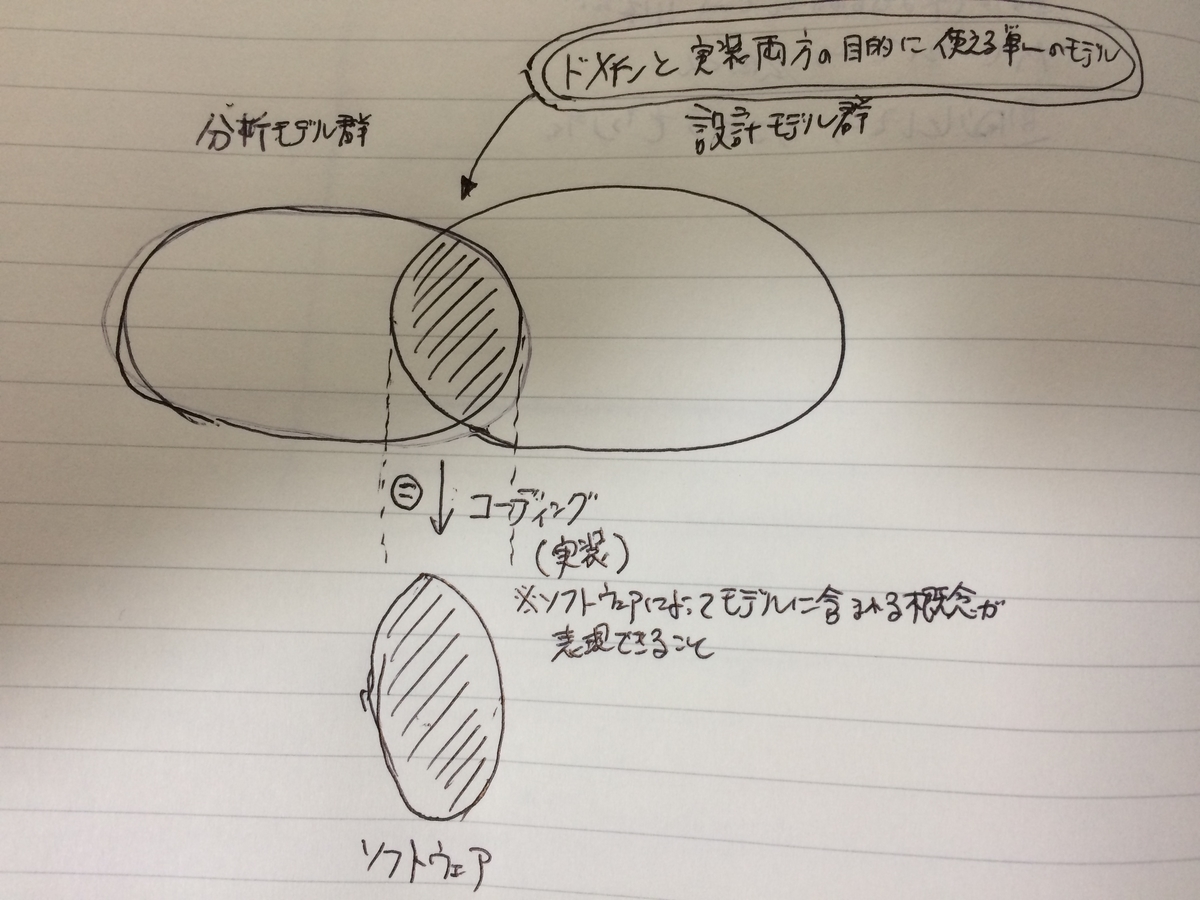 ドメインと実装両方の目的に使える単一のモデル
分析モデル群
設計モデル群
＝
コーディング
(実装)
※ソフトウェアによってモデルに含まれる概念が
表現できること
ソフトウェア